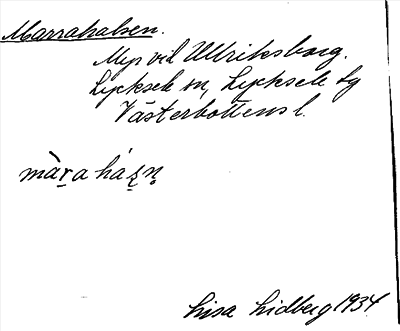 Marrahalsen.
Myr vid Ullriksborg.
Lycksele sn, Lycksele lg
Västerbottens l.
màr̠a há ṣn̥
Lisa Lidberg 1934